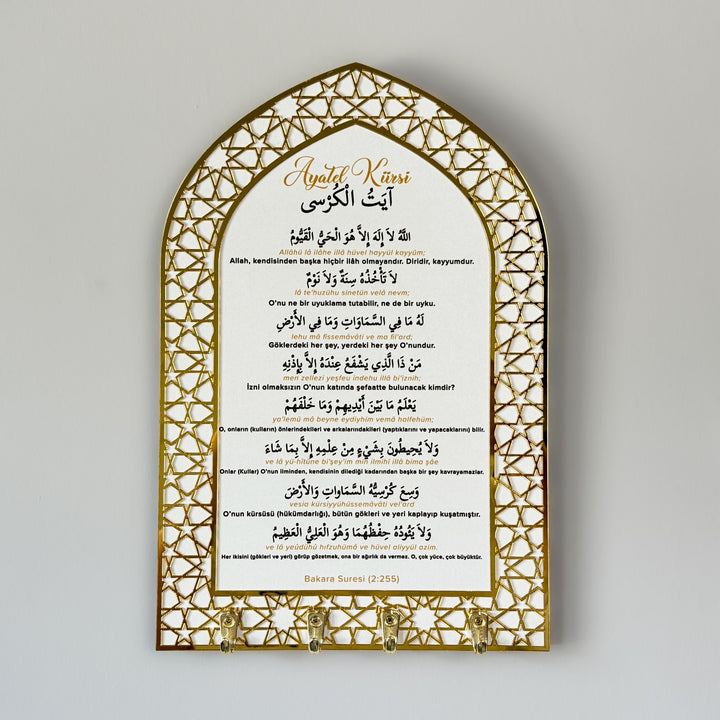 Ayatel Kürsi
آيَتُ الْكُرْسى
اَللّٰهُ لاَ إِلَهَ إِلاَّ هُوَ الْحَيُّ الْقَيُّومُ
Allâhü lâ ilâhe illâ hüvel hayyül kayyûm;
Allah, kendisinden başka hiçbir ilâh olmayandır. Diridir, kayyumdur.
لاَ تَأْخُذُهُ سِنَةٌ وَلاَ نَوْمٌ
lâ te'huzühu sinetün velâ nevm;
O'nu ne bir uyuklama tutabilir, ne de bir uyku.
لَهُ مَا فِي السَّمَاوَاتِ وَمَا فِي الأَرْضِ
lehu mâ fissemâvâti ve ma fil'ard;
Göklerdeki her şey, yerdeki her şey O'nundur.
مَنْ ذَا الَّذِي يَشْفَعُ عِنْدَهُ إِلاَّ بِإِذْنِهِ
men zellezi yeşfeu indehu illâ bi'iznih;
İzni olmaksızın O'nun katında şefaatte bulunacak kimdir?
يَعْلَمُ مَا بَيْنَ أَيْدِيهِمْ وَمَا خَلْفَهُمْ
ya'lemü mâ beyne eydiyhim vemâ halfehüm;
O, onların (kulların) önlerindekileri ve arkalarındakileri (yaptıklarını ve yapacaklarını) bilir.
وَلاَ يُحِيطُونَ بِشَيْءٍ مِنْ عِلْمِهِ إِلاَّ بِمَا شَاءَ
ve lâ yü-hîtûne bi'şey'in min ilmihî illâ bima şâe
Onlar (Kullar) O'nun ilminden, kendisinin dilediği kadarından başka bir şey kavrayamazlar.
وَسِعَ كُرْسِيُّهُ السَّمَاوَاتِ وَالأَرْضَ
vesia kürsiyyühüssemâvâti vel'ard
O'nun kürsüsü (hükümdarlığı), bütün gökleri ve yeri kaplayıp kuşatmıştır.
وَلاَ يَئُودُهُ حِفْظُهُمَا وَهُوَ الْعَلِيُّ الْعَظِيمُ
ve lâ yeûdühû hıfzuhümâ ve hüvel aliyyül azim.
Her ikisini (gökleri ve yeri) görüp gözetmek, ona bir ağırlık da vermez. O, çok yüce, çok büyüktür.
Bakara Suresi (2:255)